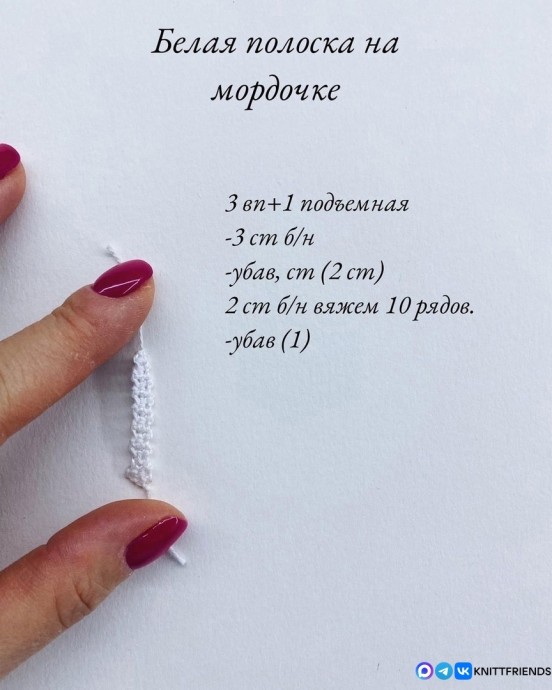 Белая полоска на
мордочке
3 вп+1 подъемная
-3 ст б/н
-убав, ст (2 ст)
2 ст б/н вяжем 10 рядов.
-убав (1)
KNITTFRIENDS